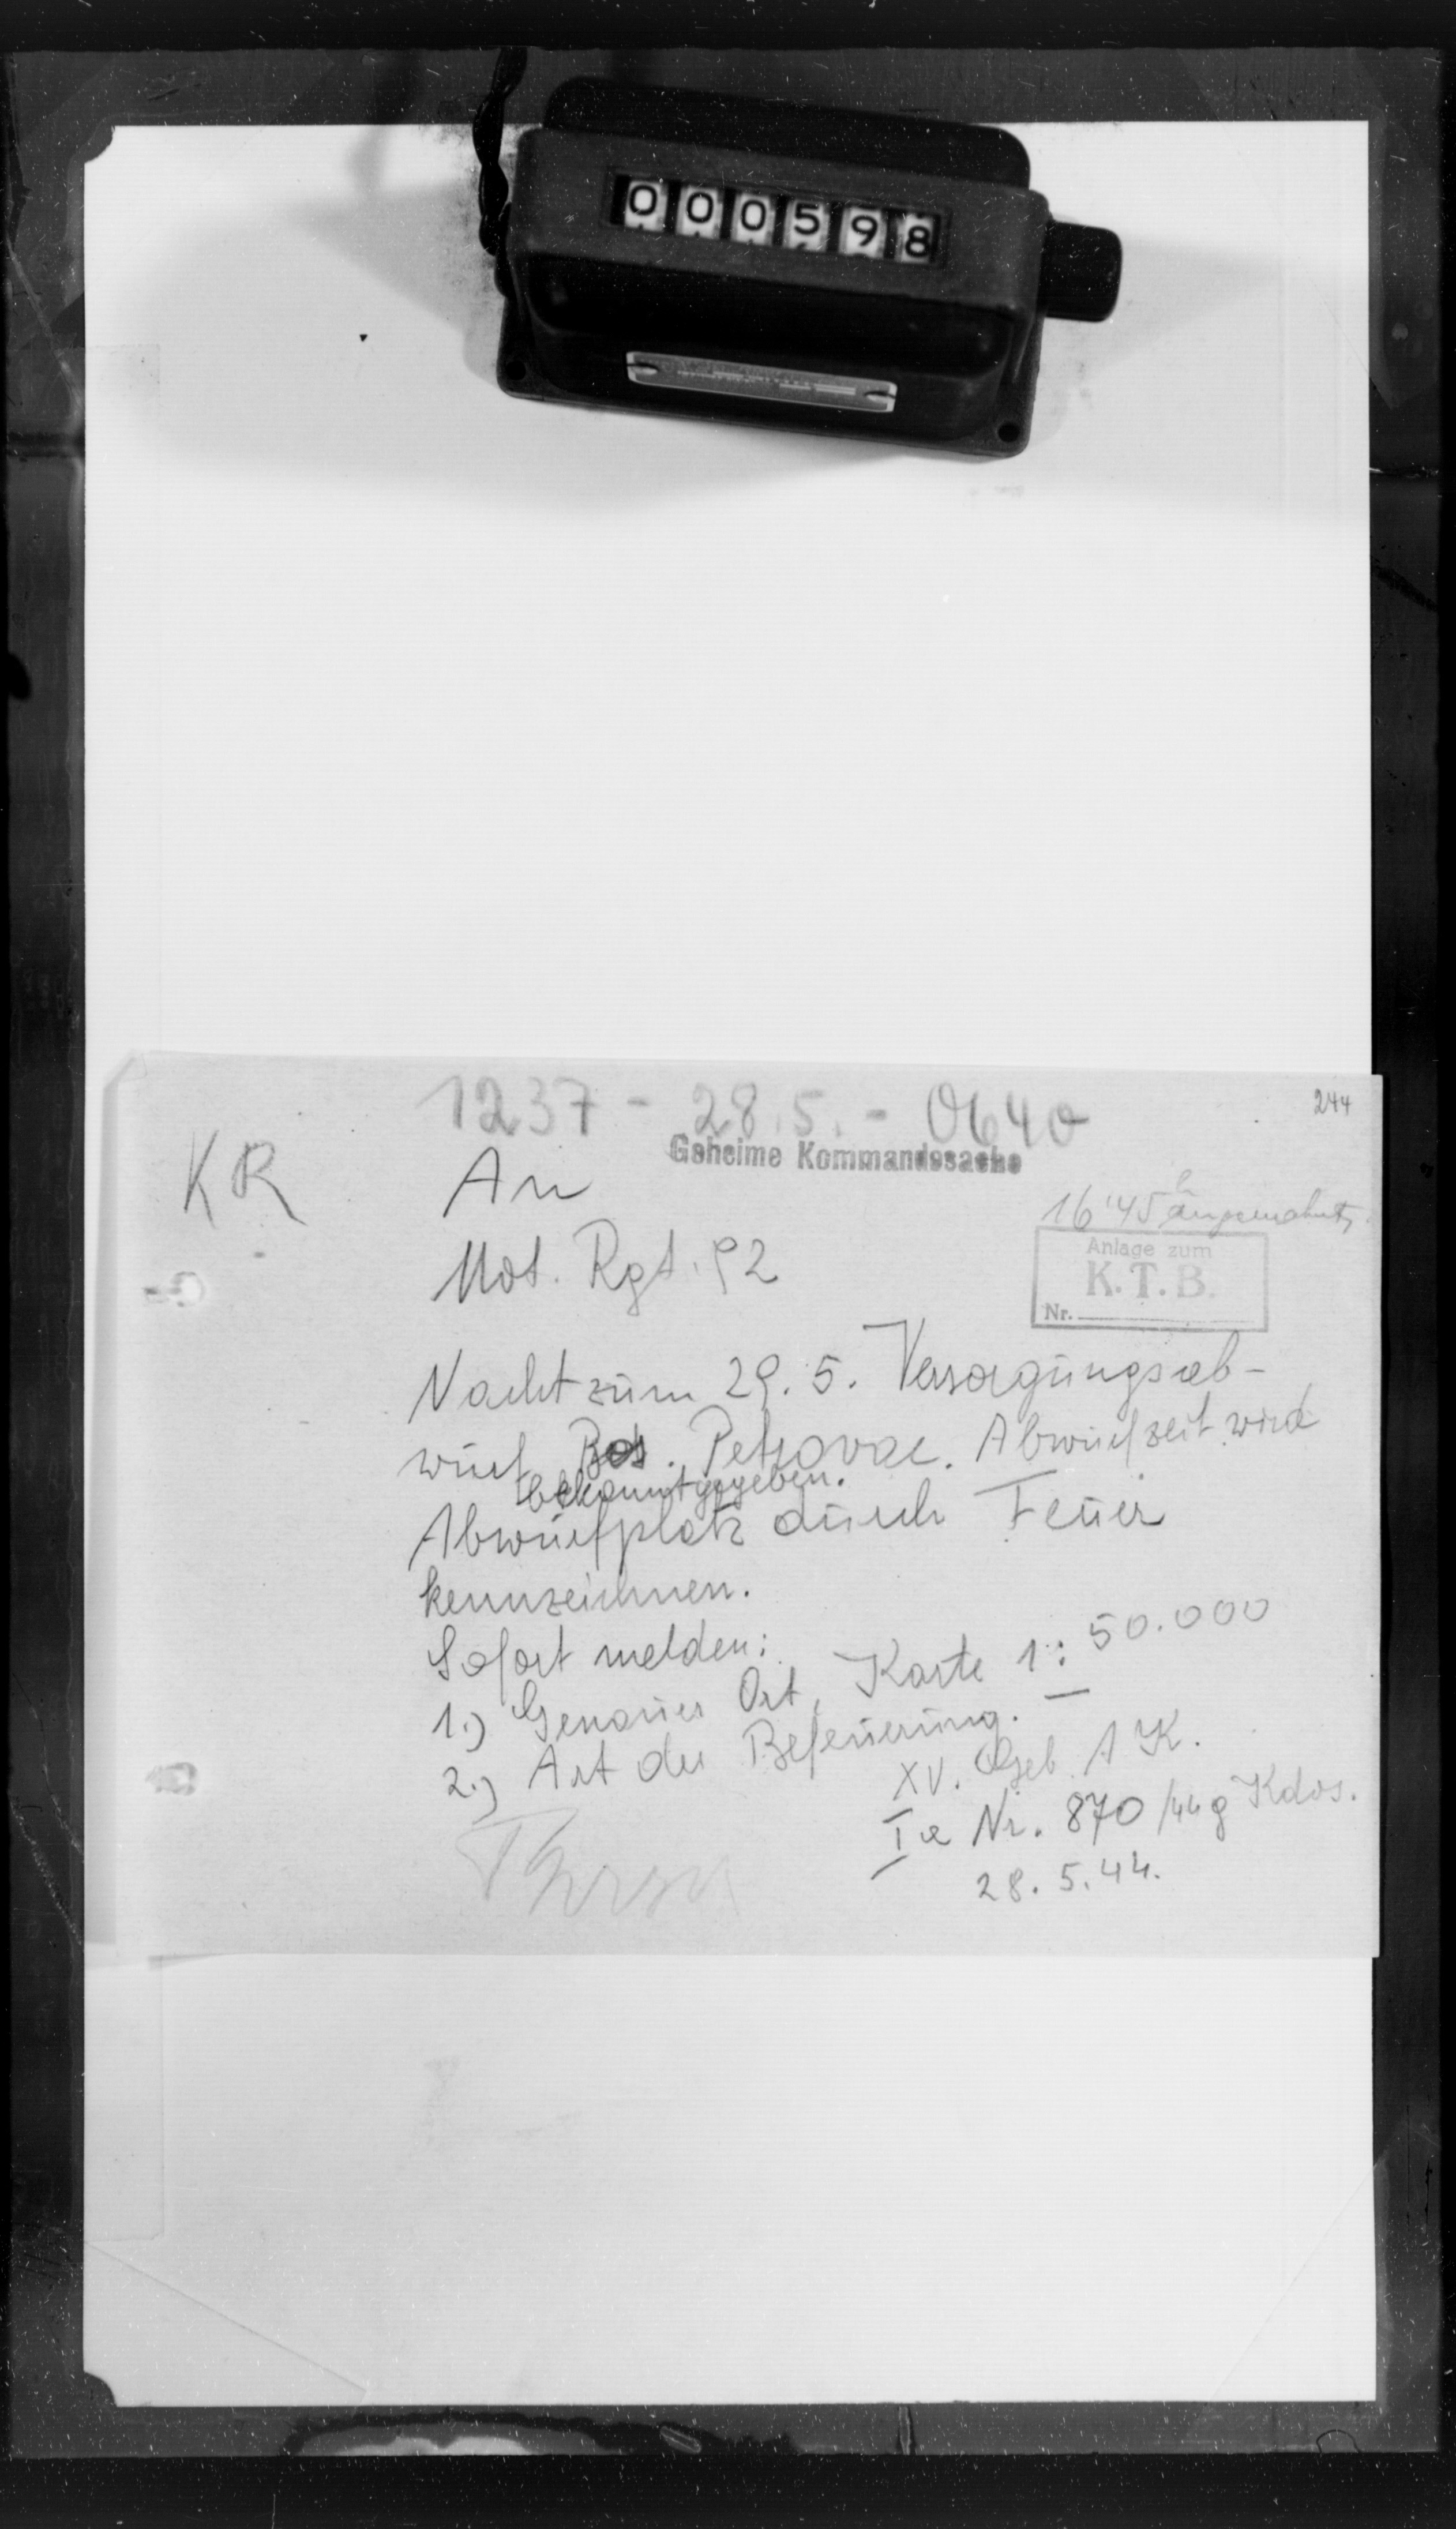 000598
1237 - 28.5. - 0640
244
Geheime Kommandosache
KR
An
16 45 h angemahnt
Mot. Rgt. 92
Anlage zum
K.T.B.
Nr.
Nacht zum 29.5. Versorgungsab-
wurf Bos. Petrovac. Abwurfzeit wird
bekanntgegeben.
Abwurfplatz durch Feuer
kennzeichnen.
Sofort melden:
1.) Genauer Ort, Karte 1:50.000
2.) Art der Befeuerung.
XV. Geb. A K.
Ia Nr. 870/44 g Kdos.
28.5.44.